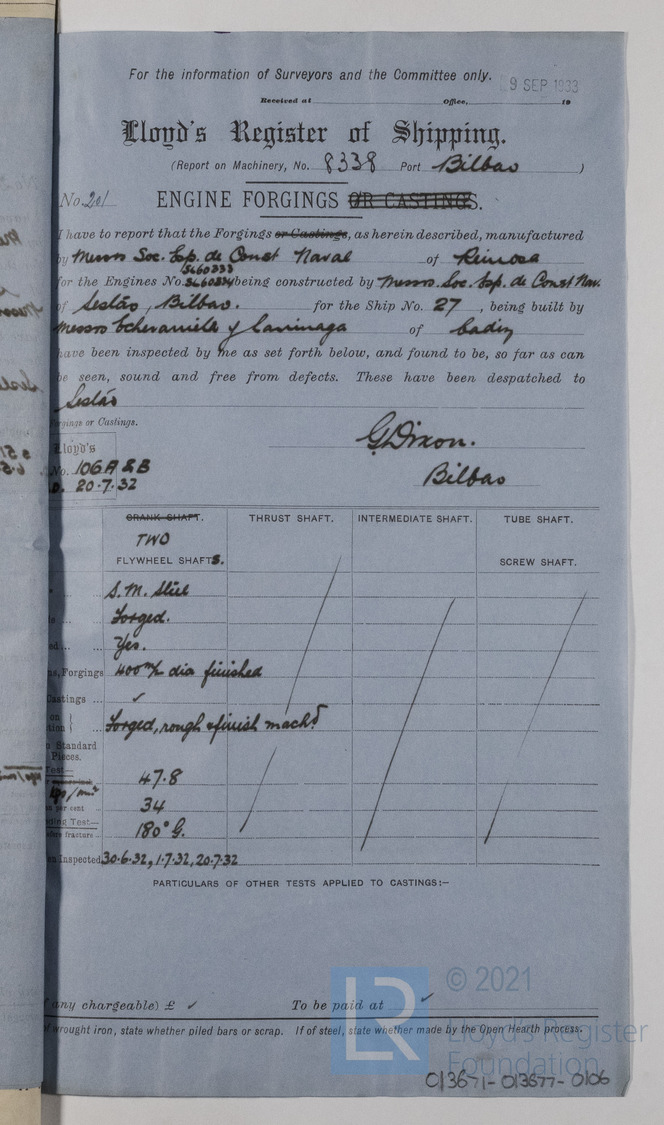 For the information of Surveyors and the Committee only.
9 SEP 1933
Received at Office, 19
Lloyd's Register of Shipping.
(Report on Machinery, No. 8338 Port Bilbao )
No. 201 ENGINE FORGINGS OR CASTINGS.
I have to report that the Forgings or Castings, as herein described, manufactured
by Messrs Soc. Esp. de Const Naval of Reinosa
5660333
for the Engines No. 5660334 being constructed by Messrs. Soc. Esp. de Const Nav.
of Sestao, Bilbao. for the Ship No. 27, being built by
Messrs Echevarrieta y Larrinaga of Cadiz
have been inspected by me as set forth below, and found to be, so far as can
be seen, sound and free from defects. These have been despatched to
Sestao
Forgings or Castings.
Lloyd's
No. 106 A & B
20.7.32
G Dixon.
Bilbao
CRANK SHAFT. THRUST SHAFT. INTERMEDIATE SHAFT. TUBE SHAFT.
TWO
FLYWHEEL SHAFTS. SCREW SHAFT.
S. M. Steel
Forged.
Yes.
Forgings 400 m/m dia finished
Castings ... ✓
Forged, rough & finish machd
Standard
Pieces.
Test—
kgs/mm² 47.8
per cent 34
Test— 180° G.
fracture
Inspected 30.6.32, 1.7.32, 20.7.32
PARTICULARS OF OTHER TESTS APPLIED TO CASTINGS:—
any chargeable) £ ✓ To be paid at ✓
wrought iron, state whether piled bars or scrap. If of steel, state whether made by the Open Hearth process.
© 2021
LR
Lloyd's Register
Foundation
013671-013677-0106